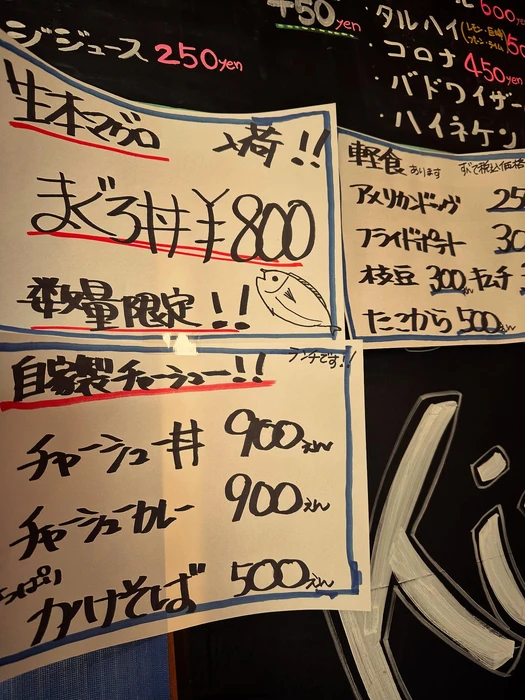 +50yen
600yen
・タルハイ
・コロナ 450yen
・バドワイザー
・ハイネケン
ジジュース 250yen
生本マグロ
入荷!!
まぐろ丼 ¥800
数量限定!!
軽食 あります すべて税込価格
アメリカンドッグ 25
フライドポテト 30
枝豆 300 キムチ
たこから 500えん
ランチです!!
自家製チャーシュー!!
チャーシュー丼 900えん
チャーシューカレー 900えん
っぱり
かけそば 500えん
Ki